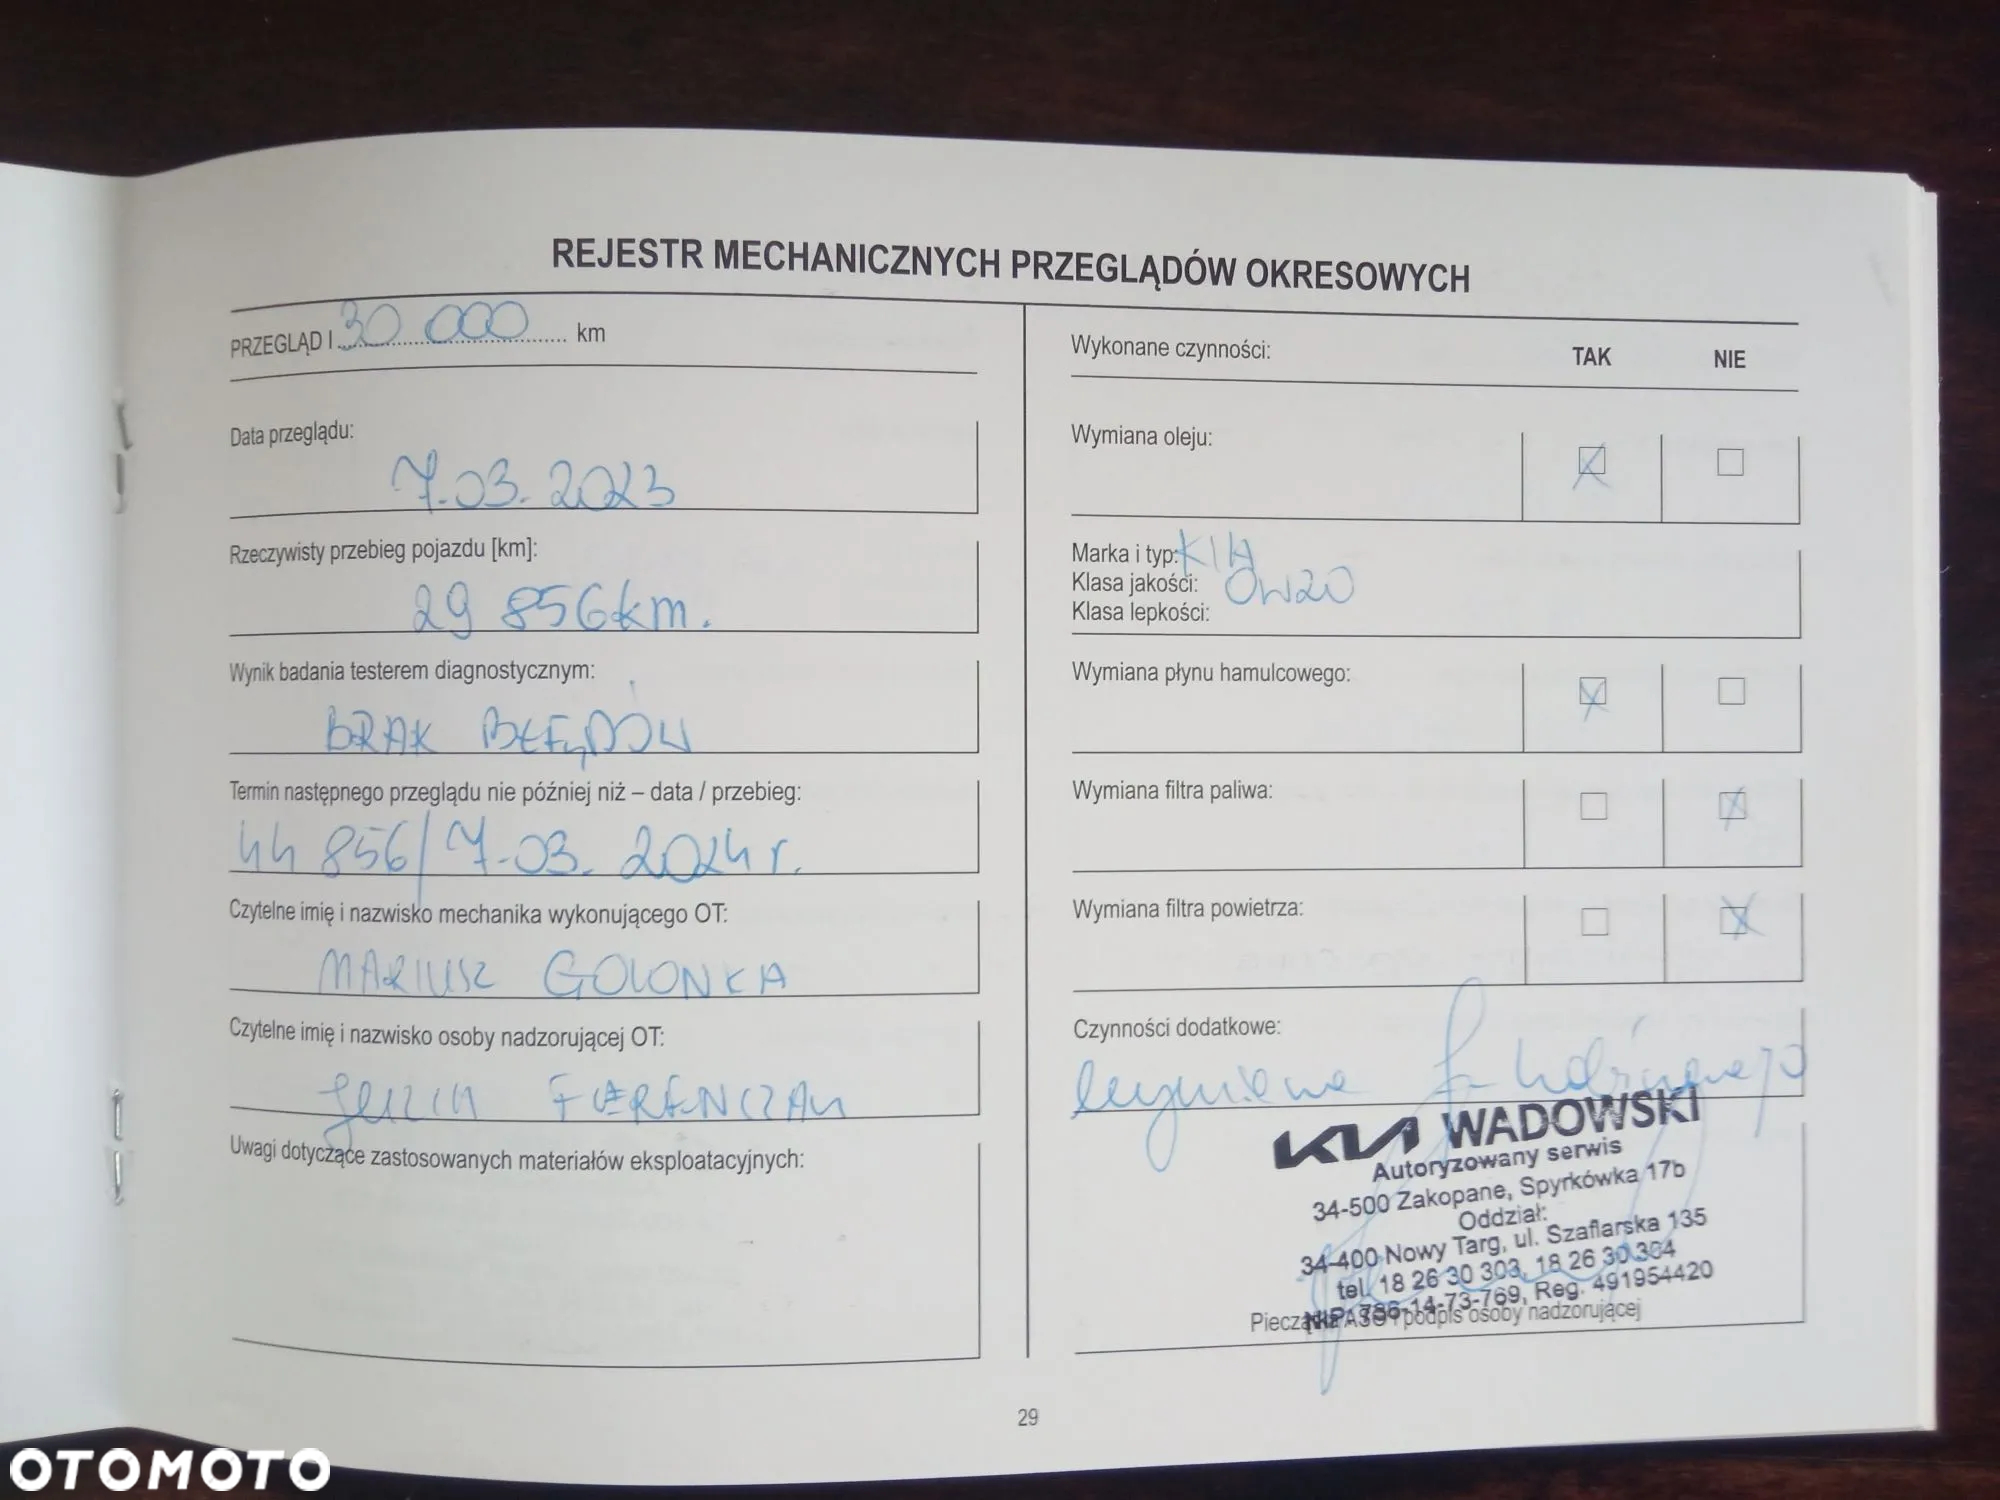 REJESTR MECHANICZNYCH PRZEGLĄDÓW OKRESOWYCH
PRZEGLĄD I 30 000 km
Data przeglądu:
7.03.2023
Rzeczywisty przebieg pojazdu [km]:
29 856 km.
Wynik badania testerem diagnostycznym:
BRAK BŁĘDÓW
Termin następnego przeglądu nie później niż – data / przebieg:
44 856/7.03.2024r.
Czytelne imię i nazwisko mechanika wykonującego OT:
MARIUSZ GOLONKA
Czytelne imię i nazwisko osoby nadzorującej OT:
Uwagi dotyczące zastosowanych materiałów eksploatacyjnych:
Wykonane czynności: TAK NIE
Wymiana oleju:
Marka i typ: KIA
Klasa jakości: 0W20
Klasa lepkości:
Wymiana płynu hamulcowego:
Wymiana filtra paliwa:
Wymiana filtra powietrza:
Czynności dodatkowe:
wymiana
KIA WADOWSKI
Autoryzowany serwis
34-500 Zakopane, Spyrkówka 17b
Oddział:
34-400 Nowy Targ, ul. Szaflarska 135
tel. 18 26 30 303, 18 26 30 304
NIP 736-14-73-769, Reg. 491954420
Pieczątka ASO i podpis osoby nadzorującej
29
OTOMOTO